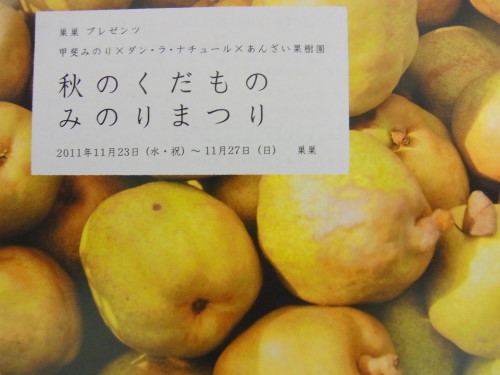 巣巣 プレゼンツ
甲斐みのり×ダン・ラ・ナチュール×あんざい果樹園
秋のくだもの
みのりまつり
2011年11月23日（水・祝）〜11月27日（日） 巣巣